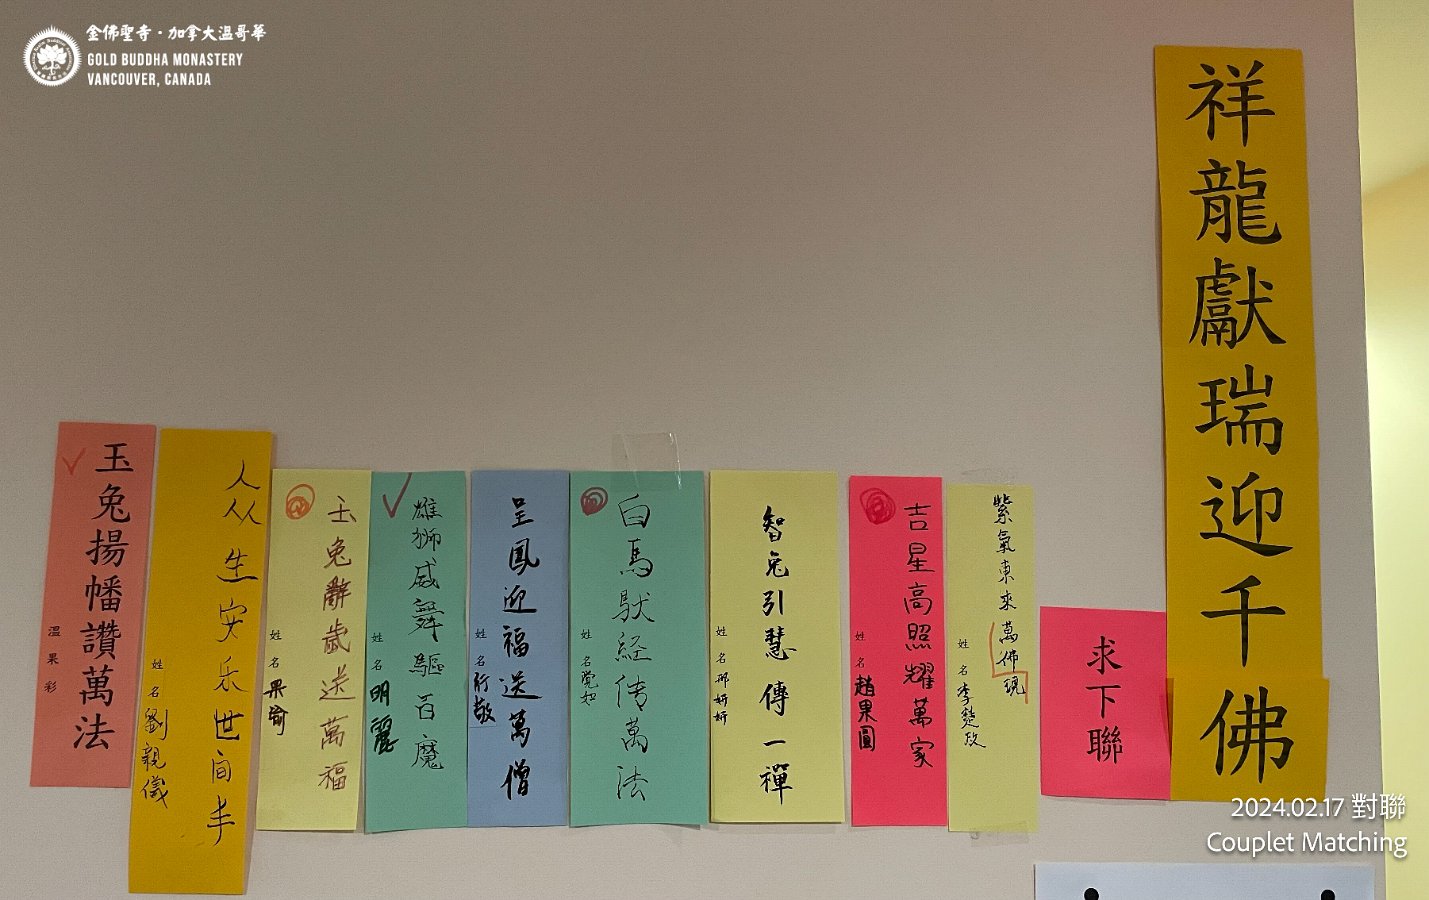 金佛聖寺·加拿大溫哥華
GOLD BUDDHA MONASTERY
VANCOUVER, CANADA
祥龍獻瑞迎千佛
求下聯
紫氣東來萬佛現
姓名李楚政
吉星高照耀萬家
姓名趙果圓
智兔引慧傳一禪
姓名邢妍妍
白馬馱経传萬法
姓名覺如
呈鳳迎福送萬僧
姓名行敬
雄獅威舞驅百魔
姓名明麗
玉兔辭歲送萬福
姓名果崳
人从生安乐世间丰
姓名劉親儀
玉兔揚幡讚萬法
溫果彩
2024.02.17 對聯
Couplet Matching